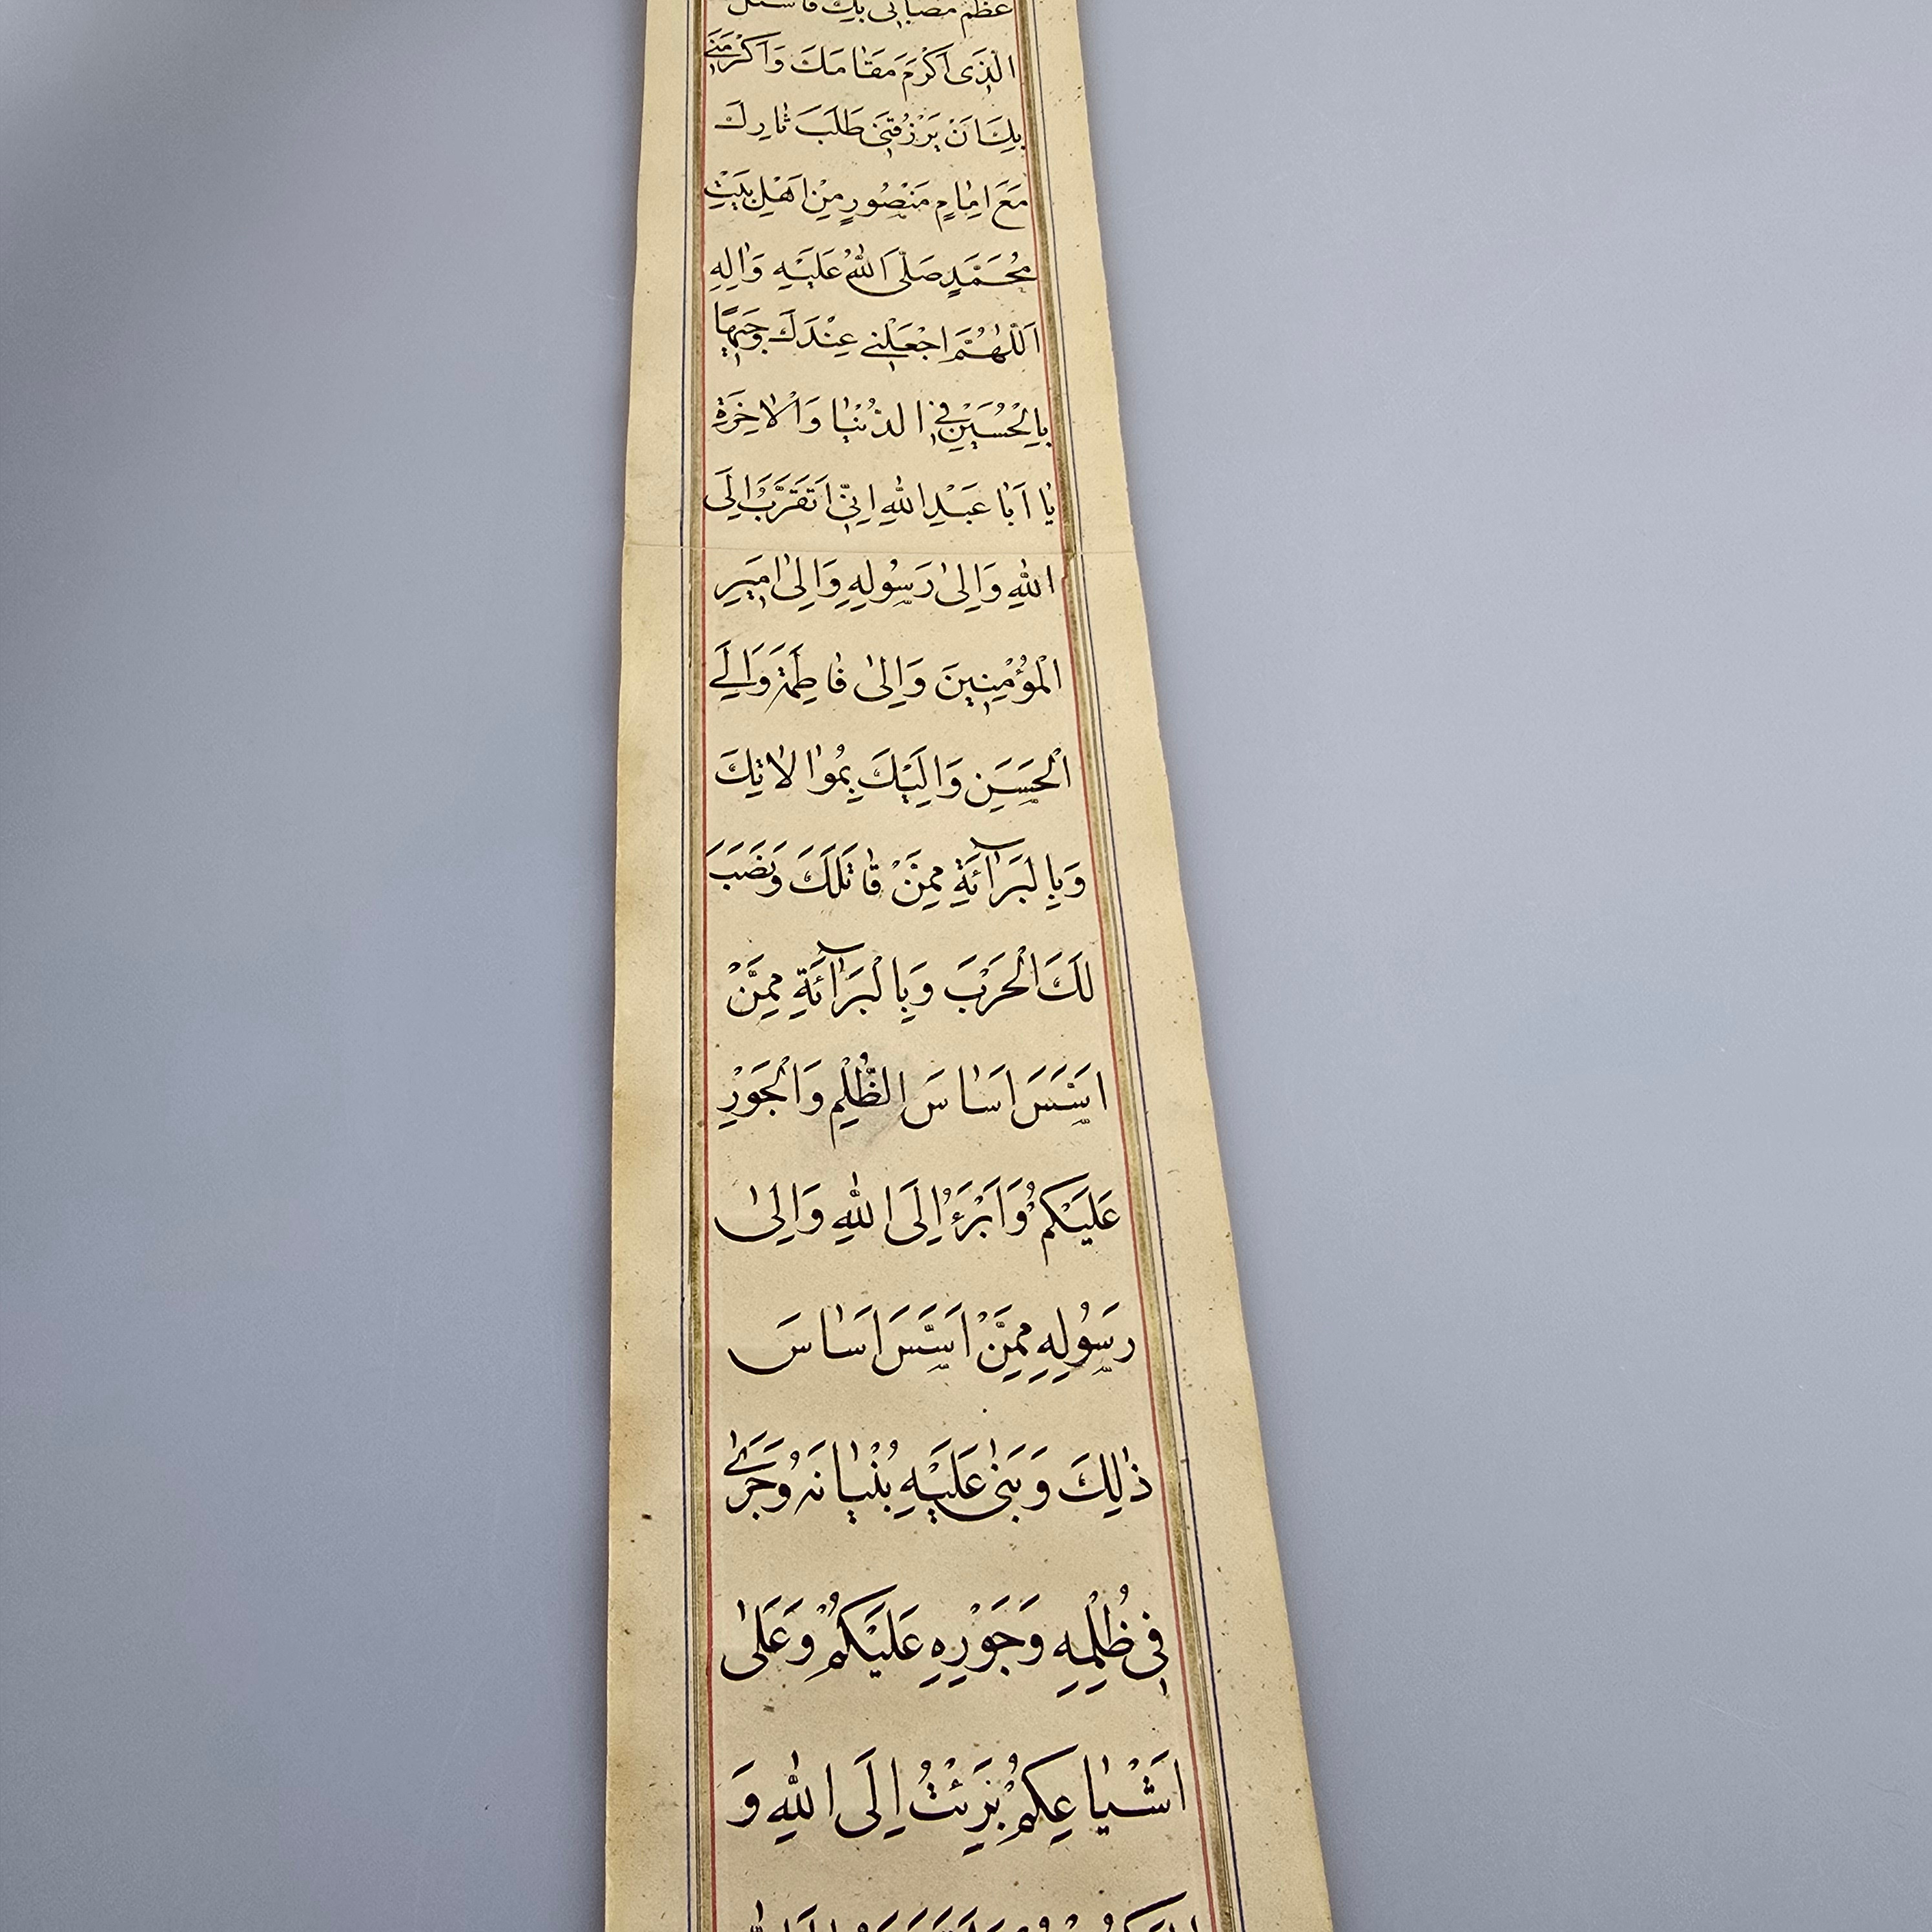 عظم مصابی بك فاسئل
الَّذَی اَكْرَمَ مَقٰامَكَ وَاَكْرَمَنے
بِكَ اَنْ يَرْزُقَنی طَلَبَ ثٰارِكَ
مَعَ اِمٰامٍ مَنْصُورٍ مِنْ اَهْلِ بَيْتِ
مُحَمَّدٍ صَلَّی اللّٰهُ عَلَيْهِ وَاٰلِهِ
اَللّٰهُمَّ اجْعَلْنے عِنْدَكَ وَجيهًا
بِالْحُسَيْنِ فِے الدُّنْيٰا وَالْاٰخِرَةِ
يٰا اَبٰا عَبْدِ اللّٰهِ اِنّی اَتَقَرَّبُ اِلَی
اللّٰهِ وَاِلیٰ رَسُولِهِ وَاِلیٰ اَميرِ
الْمُؤْمِنينَ وَاِلیٰ فٰاطِمَةَ وَاِلَے
الْحَسَنِ وَاِلَيْكَ بِمُوٰالاٰتِكَ
وَبِالْبَرٰآئَةِ مِمَّنْ قٰاتَلَكَ وَنَصَبَ
لَكَ الْحَرْبَ وَبِالْبَرٰآئَةِ مِمَّنْ
اَسَّسَ اَسٰاسَ الظُّلْمِ وَالْجَوْرِ
عَلَيْكُمْ وَاَبْرَءُ اِلَی اللّٰهِ وَاِلیٰ
رَسُولِهِ مِمَّنْ اَسَّسَ اَسٰاسَ
ذٰلِكَ وَبَنیٰ عَلَيْهِ بُنْيٰانَهُ وَجَرٰے
فی ظُلْمِهِ وَجَوْرِهِ عَلَيْكُمْ وَعَلیٰ
اَشْيٰاعِكُمْ بَرِئْتُ اِلَی اللّٰهِ وَ